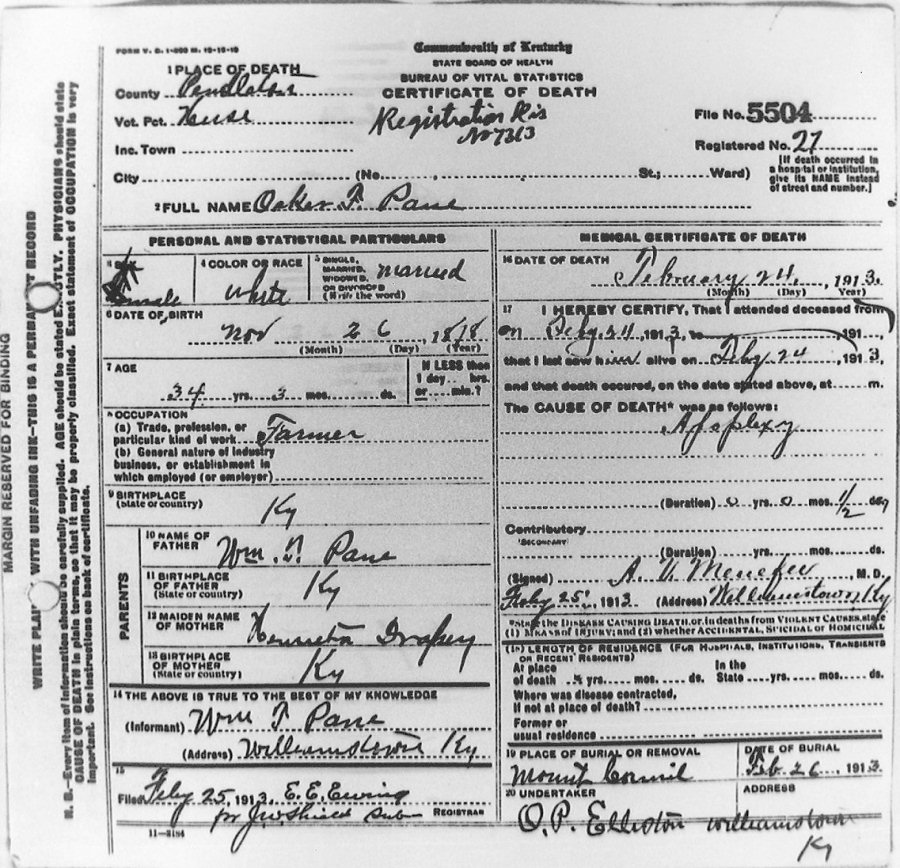 FORM V. S. 1-200 M. 12-15-10
Commonwealth of Kentucky
STATE BOARD OF HEALTH
BUREAU OF VITAL STATISTICS
CERTIFICATE OF DEATH
1 PLACE OF DEATH
County Pendleton
Vot. Pct.
Registration Dis
No 7313
File No. 5504
Inc. Town
Registered No. 27
City (No. , St.; Ward)
[If death occurred in
a hospital or institution,
give its NAME instead
of street and number.]
2 FULL NAME Oaker F. Pane
PERSONAL AND STATISTICAL PARTICULARS
4 COLOR OR RACE White
5 SINGLE, MARRIED, WIDOWED, OR DIVORCED (Write the word) married
6 DATE OF BIRTH
Nov 26 1878
(Month) (Day) (Year)
7 AGE
34 yrs. 3 mos. ds.
If LESS than
1 day hrs.
or min.?
8 OCCUPATION
(a) Trade, profession, or
particular kind of work Farmer
(b) General nature of industry
business, or establishment in
which employed (or employer)
9 BIRTHPLACE
(State or country) Ky
PARENTS
10 NAME OF
FATHER Wm. F. Pane
11 BIRTHPLACE
OF FATHER
(State or country) Ky
12 MAIDEN NAME
OF MOTHER Henrietta
13 BIRTHPLACE
OF MOTHER
(State or country) Ky
14 THE ABOVE IS TRUE TO THE BEST OF MY KNOWLEDGE
(Informant) Wm F Pane
(Address) Williamstown Ky
15
Filed Feby 25, 1913, E. E. Ewing
for J W Shield Sub REGISTRAR
11-3184
MEDICAL CERTIFICATE OF DEATH
16 DATE OF DEATH
February 24, 1913.
(Month) (Day) Year)
17 I HEREBY CERTIFY, That I attended deceased from
on Feby 24, 1913, to , 191 ,
that I last saw him alive on Feby 24, 1913,
and that death occured, on the date stated above, at m.
The CAUSE OF DEATH* was as follows:
Apoplexy
(Duration) 0 yrs. 0 mos. 1/2 day
Contributory
(SECONDARY)
(Duration) yrs. mos. ds.
(Signed) A. V. Menefee, M. D.
Feby 25, 1913 (Address) Williamstown, Ky
*State the DISEASE CAUSING DEATH, or, in deaths from VIOLENT CAUSES, state
(1) MEANS OF INJURY; and (2) whether ACCIDENTAL, SUICIDAL or HOMICIDAL
(18) LENGTH OF RESIDENCE (FOR HOSPITALS, INSTITUTIONS, TRANSIENTS
OR RECENT RESIDENTS)
At place of death yrs. mos. ds. In the State yrs. mos. ds.
Where was disease contracted,
if not at place of death?
Former or
usual residence
19 PLACE OF BURIAL OR REMOVAL
Mount
DATE OF BURIAL
Feb 26, 1913
20 UNDERTAKER
O. P. Elliston
ADDRESS
Williamstown
Ky
MARGIN RESERVED FOR BINDING
WRITE PLAINLY WITH UNFADING INK—THIS IS A PERMANENT RECORD
N. B.—Every item of information should be carefully supplied. AGE should be stated EXACTLY. PHYSICIANS should state
CAUSE OF DEATH in plain terms, so that it may be properly classified. Exact statement of OCCUPATION is very
important. See instructions on back of certificate.